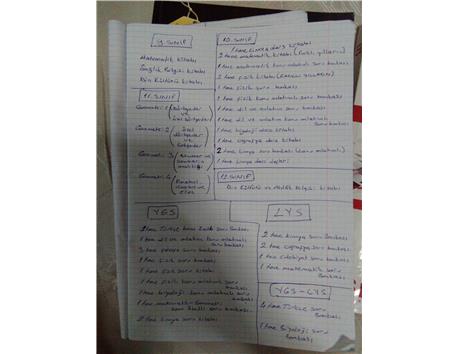 9. SINIF
Matematik kitabı
Sağlık Bilgisi kitabı
Din Kültürü kitabı
11. SINIF
Geometri: 1
Geometri: 2
Geometri: 3
Geometri: 4
10. SINIF
1 tane kimya ders kitabı
2 tane matematik kitabı
1 tane matematik konu anlatımlı soru bankası
2 tane fizik kitabı
1 tane fizik soru bankası
1 tane fizik konu anlatımlı soru bankası
1 tane dil ve anlatım soru bankası
1 tane dil ve anlatım konu anlatımlı
soru bankası
1 tane biyoloji ders kitabı
1 tane coğrafya ders kitabı
2 tane kimya soru bankası (konu anlatımlı)
1 tane kimya ders defteri
12. SINIF
Din Kültürü ve Ahlak Bilgisi kitabı
YGS
1 tane dil ve anlatım konu anlatımlı
soru bankası
1 tane fizik soru bankası
1 tane fizik soru kitabı
1 tane fizik konu anlatımlı soru
bankası
1 tane biyoloji konu anlatımlı soru
bankası
1 tane matematik-Geometri
2 tane kimya soru kitabı
LYS
2 tane kimya soru bankası
2 tane coğrafya soru bankası
1 tane edebiyat soru bankası
1 tane matematik soru
bankası
YGS-LYS
tane Türkçe soru
bankası
1 tane Biyoloji soru
bankası